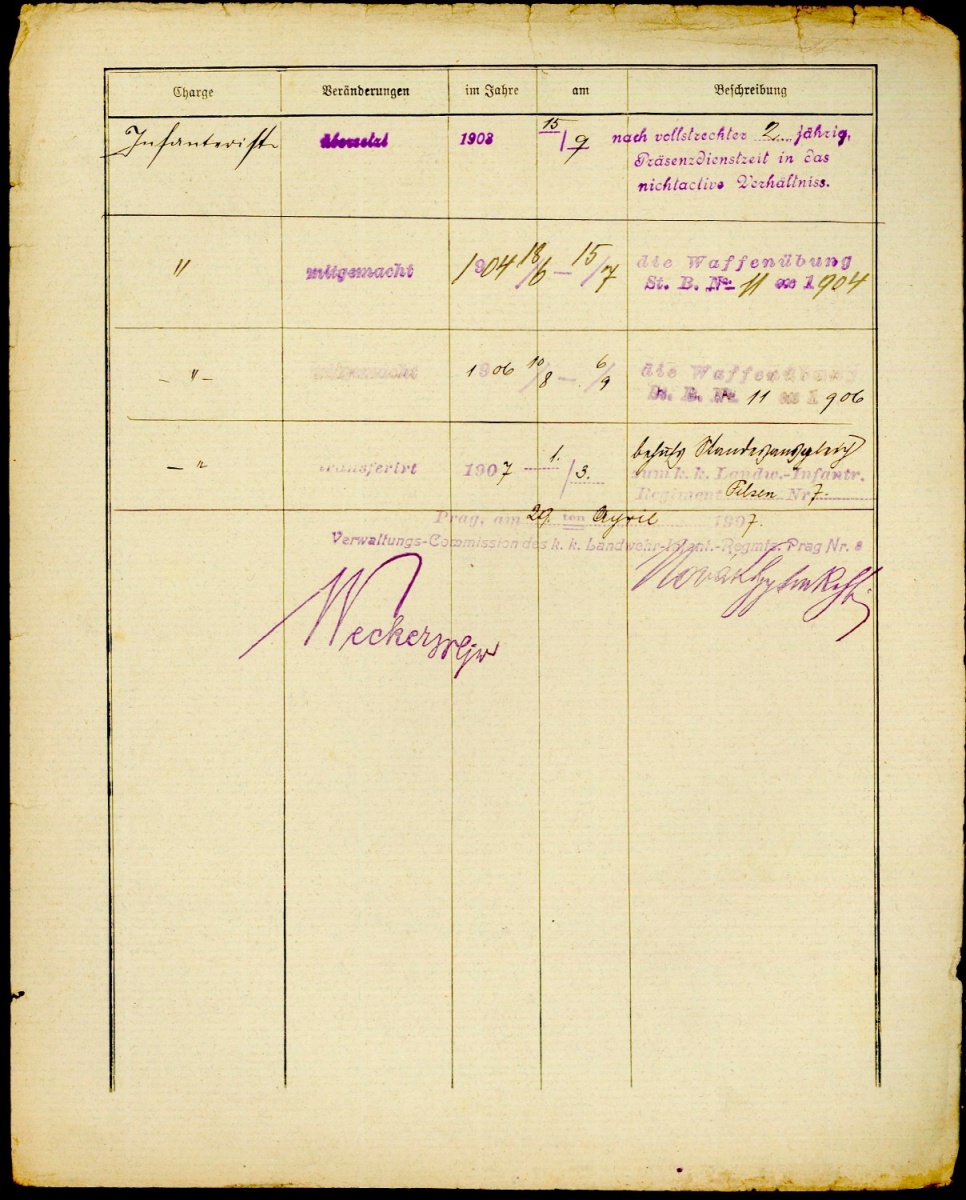 Charge Veränderungen im Jahre am Beschreibung
Infanterist übersetzt 1903 15/9 nach vollstreckter 2 jährig.
Präsenzdienstzeit in das
nichtactive Verhältniss.
" mitgemacht 1904 18/6 – 15/7 die Waffenübung
St. B. Nr. 11 ex 1904
– " – mitgemacht 1906 10/8 – 6/9 die Waffenübung
St. B. Nr. 11 ex 1906
– " transferirt 1907 1./3. behufs Standesausgleich
zum k. k. Landw.-Infantr.
Regiment Pilsen Nr 7.
Prag, am 29 ten April 1907.
Verwaltungs-Commission des k. k. Landwehr-Infant.-Regmts. Prag Nr. 8